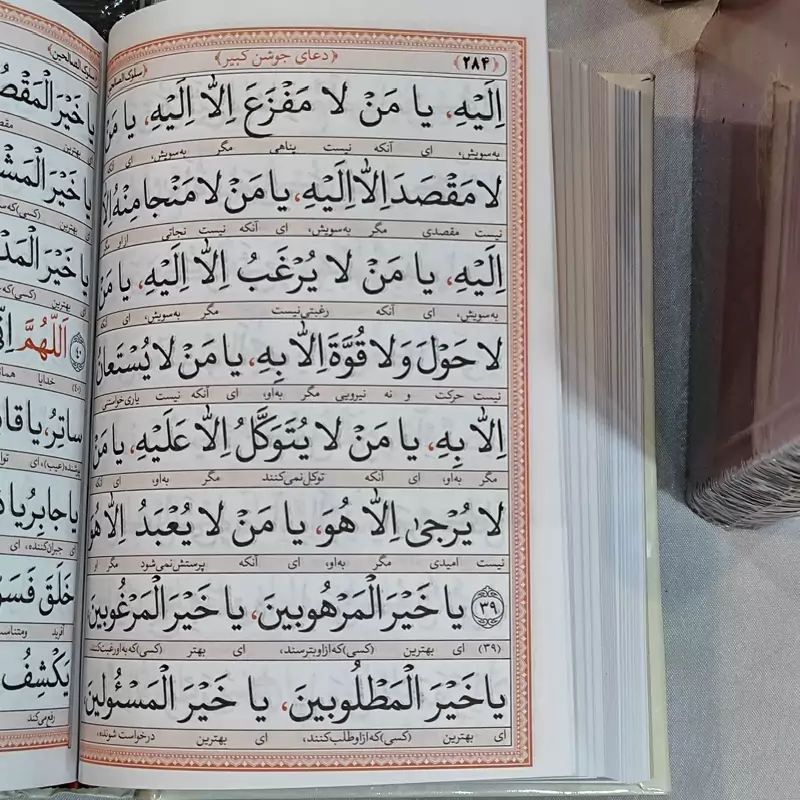 ﴿۲۸۴﴾ ﴿دعای جوشن کبیر﴾ ﴿سلوک‌الصالحین﴾
اِلَيْهِ، يا مَنْ لا مَفْزَعَ اِلاّ اِلَيْهِ، يا مَنْ
به‌سویش، ای آنکه نیست پناهی مگر به‌سویش، ای آنکه
لا مَقْصَدَ اِلاّ اِلَيْهِ، يا مَنْ لا مَنْجا مِنْهُ اِلاّ
نیست مقصدی مگر به‌سویش، ای آنکه نیست نجاتی از او مگر
اِلَيْهِ، يا مَنْ لا يُرْغَبُ اِلاّ اِلَيْهِ، يا مَنْ
به‌سویش، ای آنکه رغبتی‌نیست مگر به‌سویش، ای آنکه
لا حَوْلَ وَلا قُوَّةَ اِلاّ بِهِ، يا مَنْ لا يُسْتَعانُ
نیست حرکت و نه نیرویی مگر به‌او، ای آنکه نیست یاری‌خواستنی
اِلاّ بِهِ، يا مَنْ لا يُتَوَكَّلُ اِلاّ عَلَيْهِ، يا مَنْ
مگر به‌او، ای آنکه توکل‌نمی‌کنند مگر به‌او، ای آنکه
لا يُرْجىٰ اِلاّ هُوَ، يا مَنْ لا يُعْبَدُ اِلاّ هُوَ
نیست امیدی مگر به‌او، ای آنکه پرستش‌نمی‌شود مگر او
﴿۳۹﴾ يا خَيْرَ الْمَرْهُوبينَ، يا خَيْرَ الْمَرْغُوبينَ
(۳۹) ای بهترین (کسی)که‌ازاوبترسند، ای بهتر (کسی)که‌به‌اورغبت‌کنند
يا خَيْرَ الْمَطْلُوبينَ، يا خَيْرَ الْمَسْئُولينَ
ای بهترین (کسی)که‌ازاوطلب‌کنند، ای بهترین درخواست شونده،
﴿سلوک‌الصالحین﴾
يا خَيْرَ الْمَقْصُ
ای بهترین
يا خَيْرَ الْمَشْ
ای بهترین (کسی)که
يا خَيْرَ الْمَذْ
ای بهترین (کسی)که
﴿۴۰﴾ اَللّٰهُمَّ اِنّ
(۴۰) خدایا همانا
ساتِرُ، يا قا
ای توا
يا جابِرُ، يا ذ
ای جبران‌کننده، ای
خَلَقَ فَسَو
آفرید
يَكْشِفُ
رفع‌می‌کند